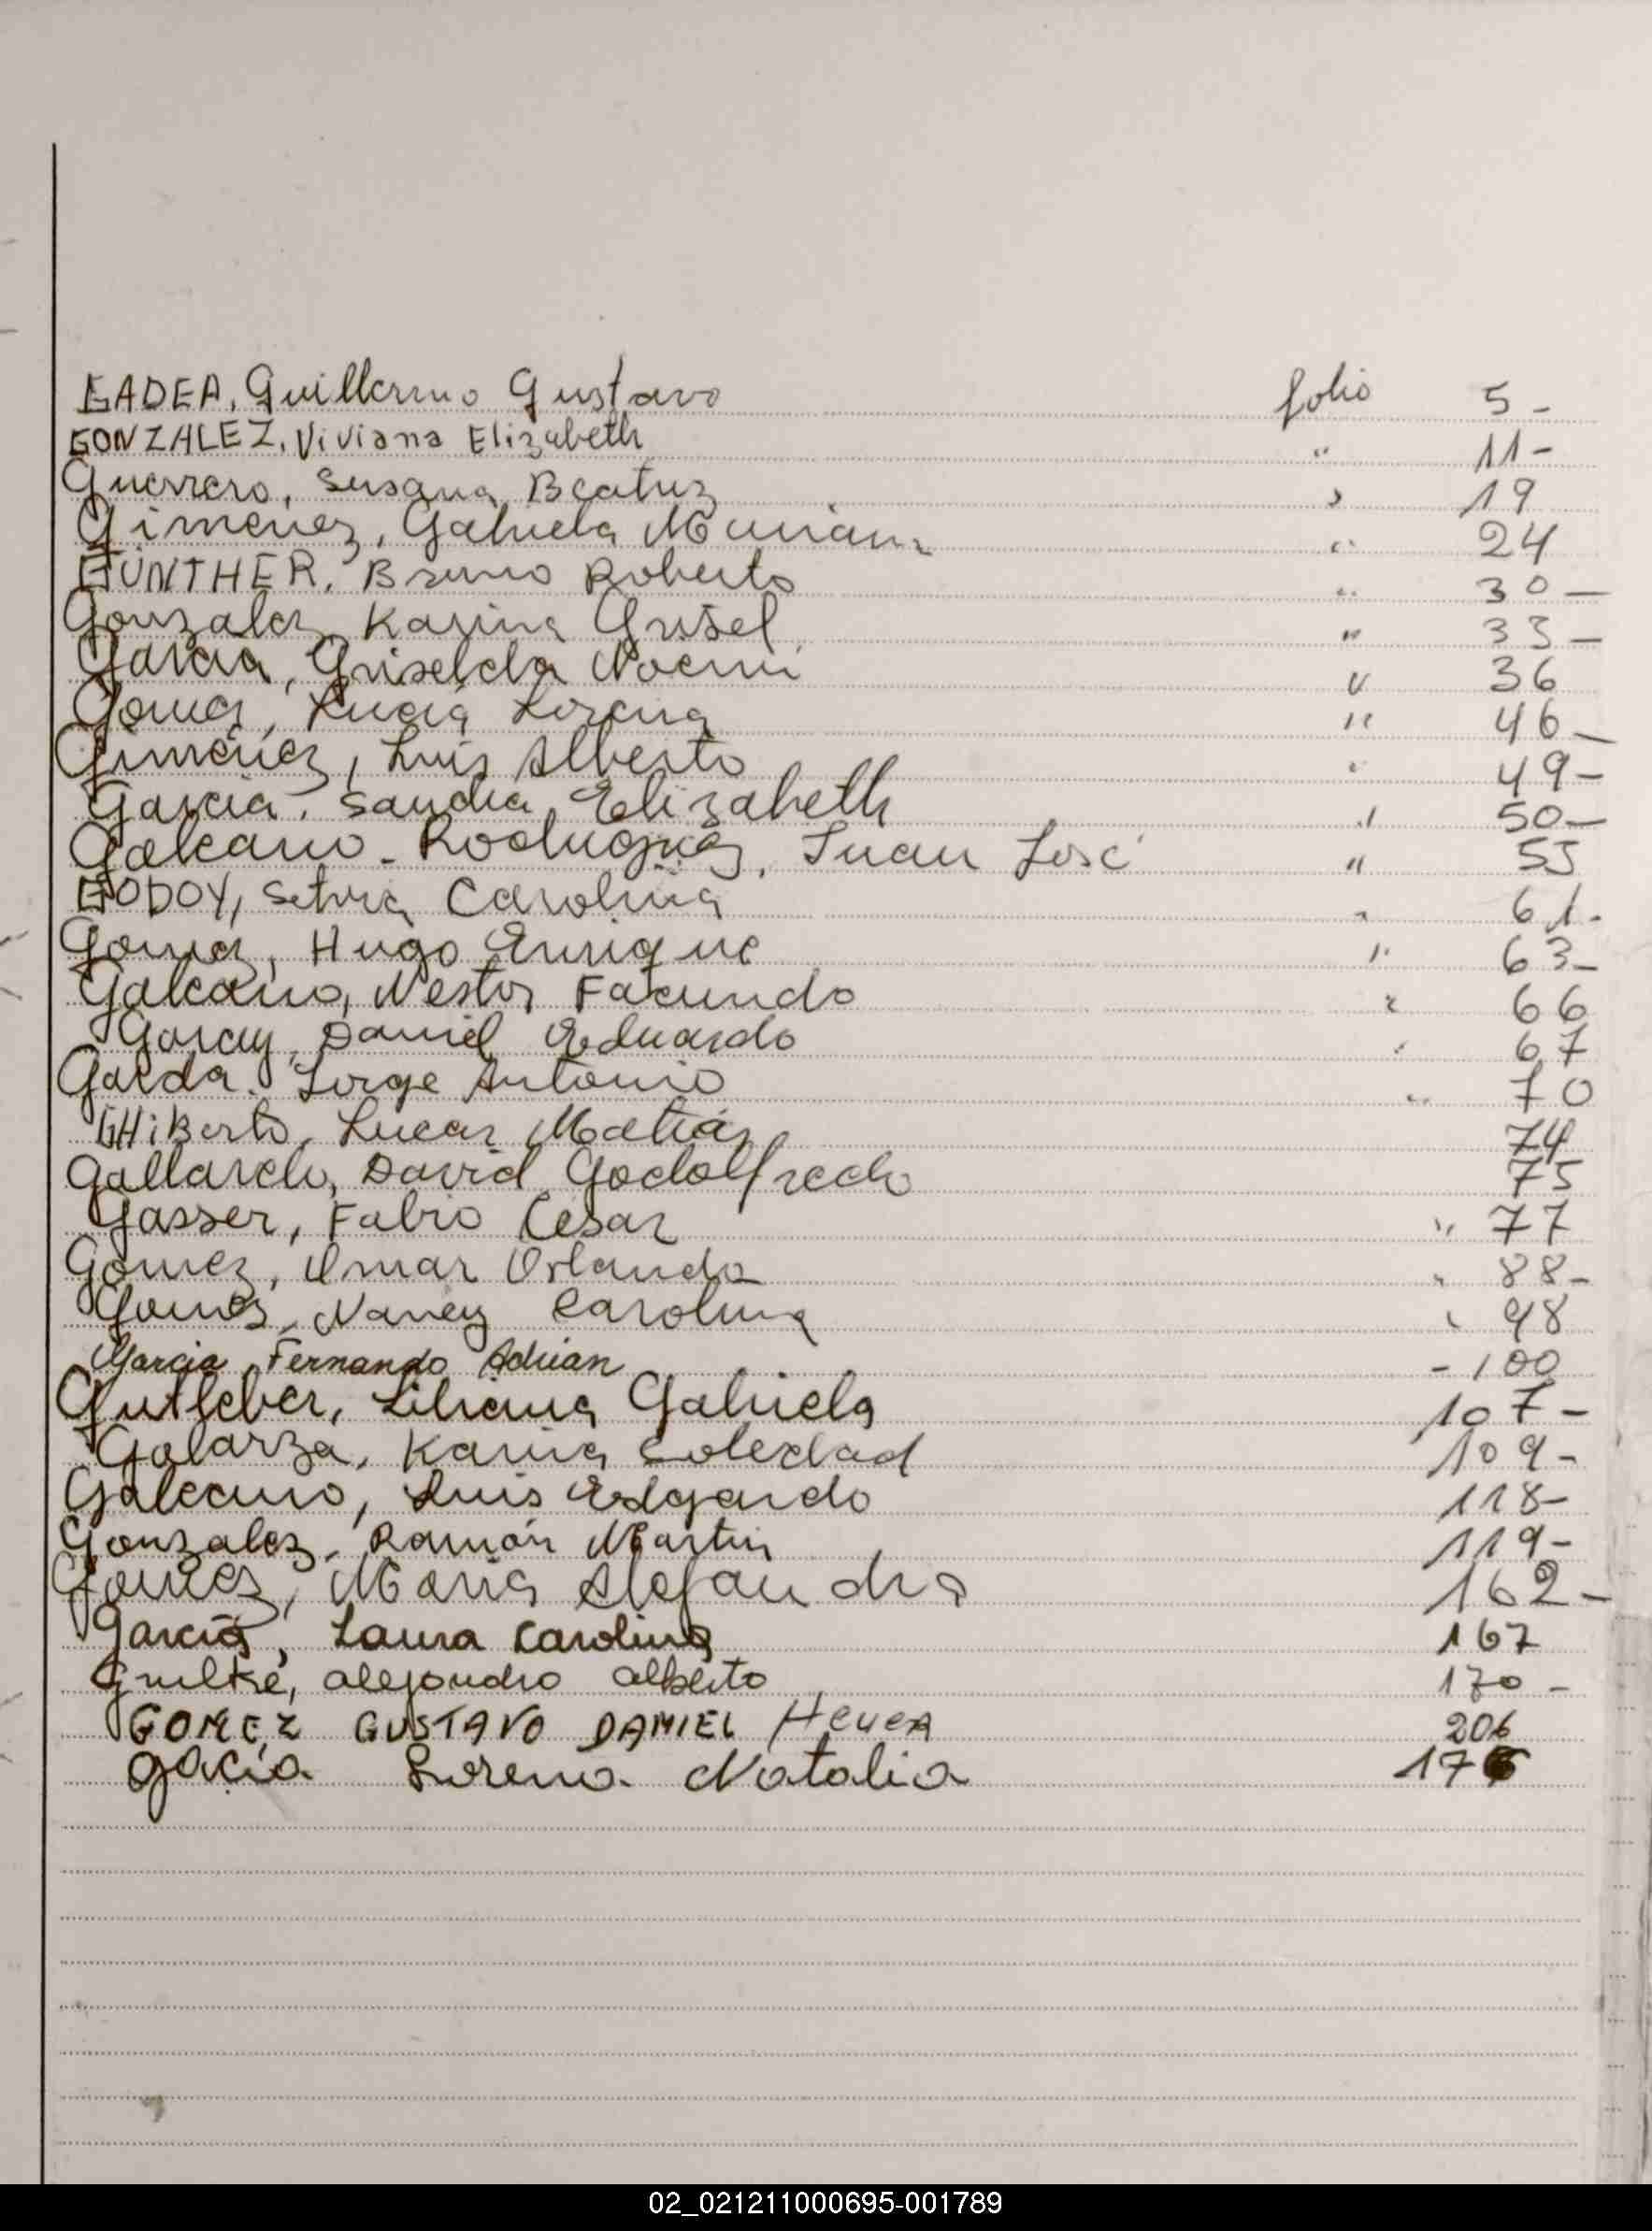 GADEA, Guillermo Gustavo folio 5 -
GONZALEZ, Viviana Elizabeth " 11 -
Guerrero, Susana Beatriz " 19
Gimenez, Gabriela Mariana " 24
GUNTHER, Bruno Roberto " 30 -
Gonzalez, Karina Grisel " 33 -
Garcia, Griselda Noemi " 36
Gomez, Lucia Lorena " 46 -
Giménez, Luis Alberto " 49 -
Garcia, Sandra Elizabeth " 50 -
Galeano - Rodriguez, Juan José " 55
GODOY, Silvia Carolina " 61 -
Gomez, Hugo Enrique " 63 -
Galeano, Nestor Facundo " 66
Garay, Daniel Eduardo " 67
Garda, Jorge Antonio " 70
GHiberto, Lucas Matías 74
Gallardo, David Godolfredo 75
Gasser, Fabio Cesar " 77
Gomez, Omar Orlando " 88 -
Gomez, Nancy Carolina " 98
Garcia Fernando Adrian - 100
Gutleber, Liliana Gabriela 107 -
Galarza, Karina Soledad 109 -
Galeano, Luis Edgardo 118 -
Gonzalez, Ramón Martin 119 -
Gomez, Maria Alejandra 162 -
Garcia, Laura Carolina 167
alejandro alberto 170 -
GOMEZ GUSTAVO DANIEL 206
gacia Lorena Natalia
02_021211000695-001789